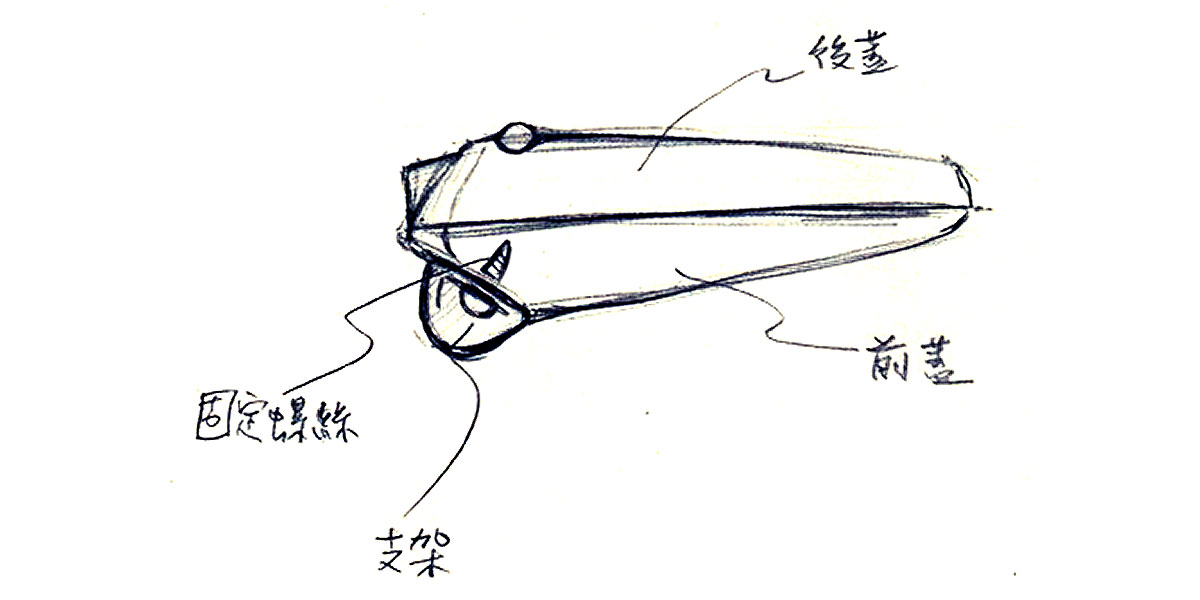 後蓋
前蓋
固定螺絲
支架